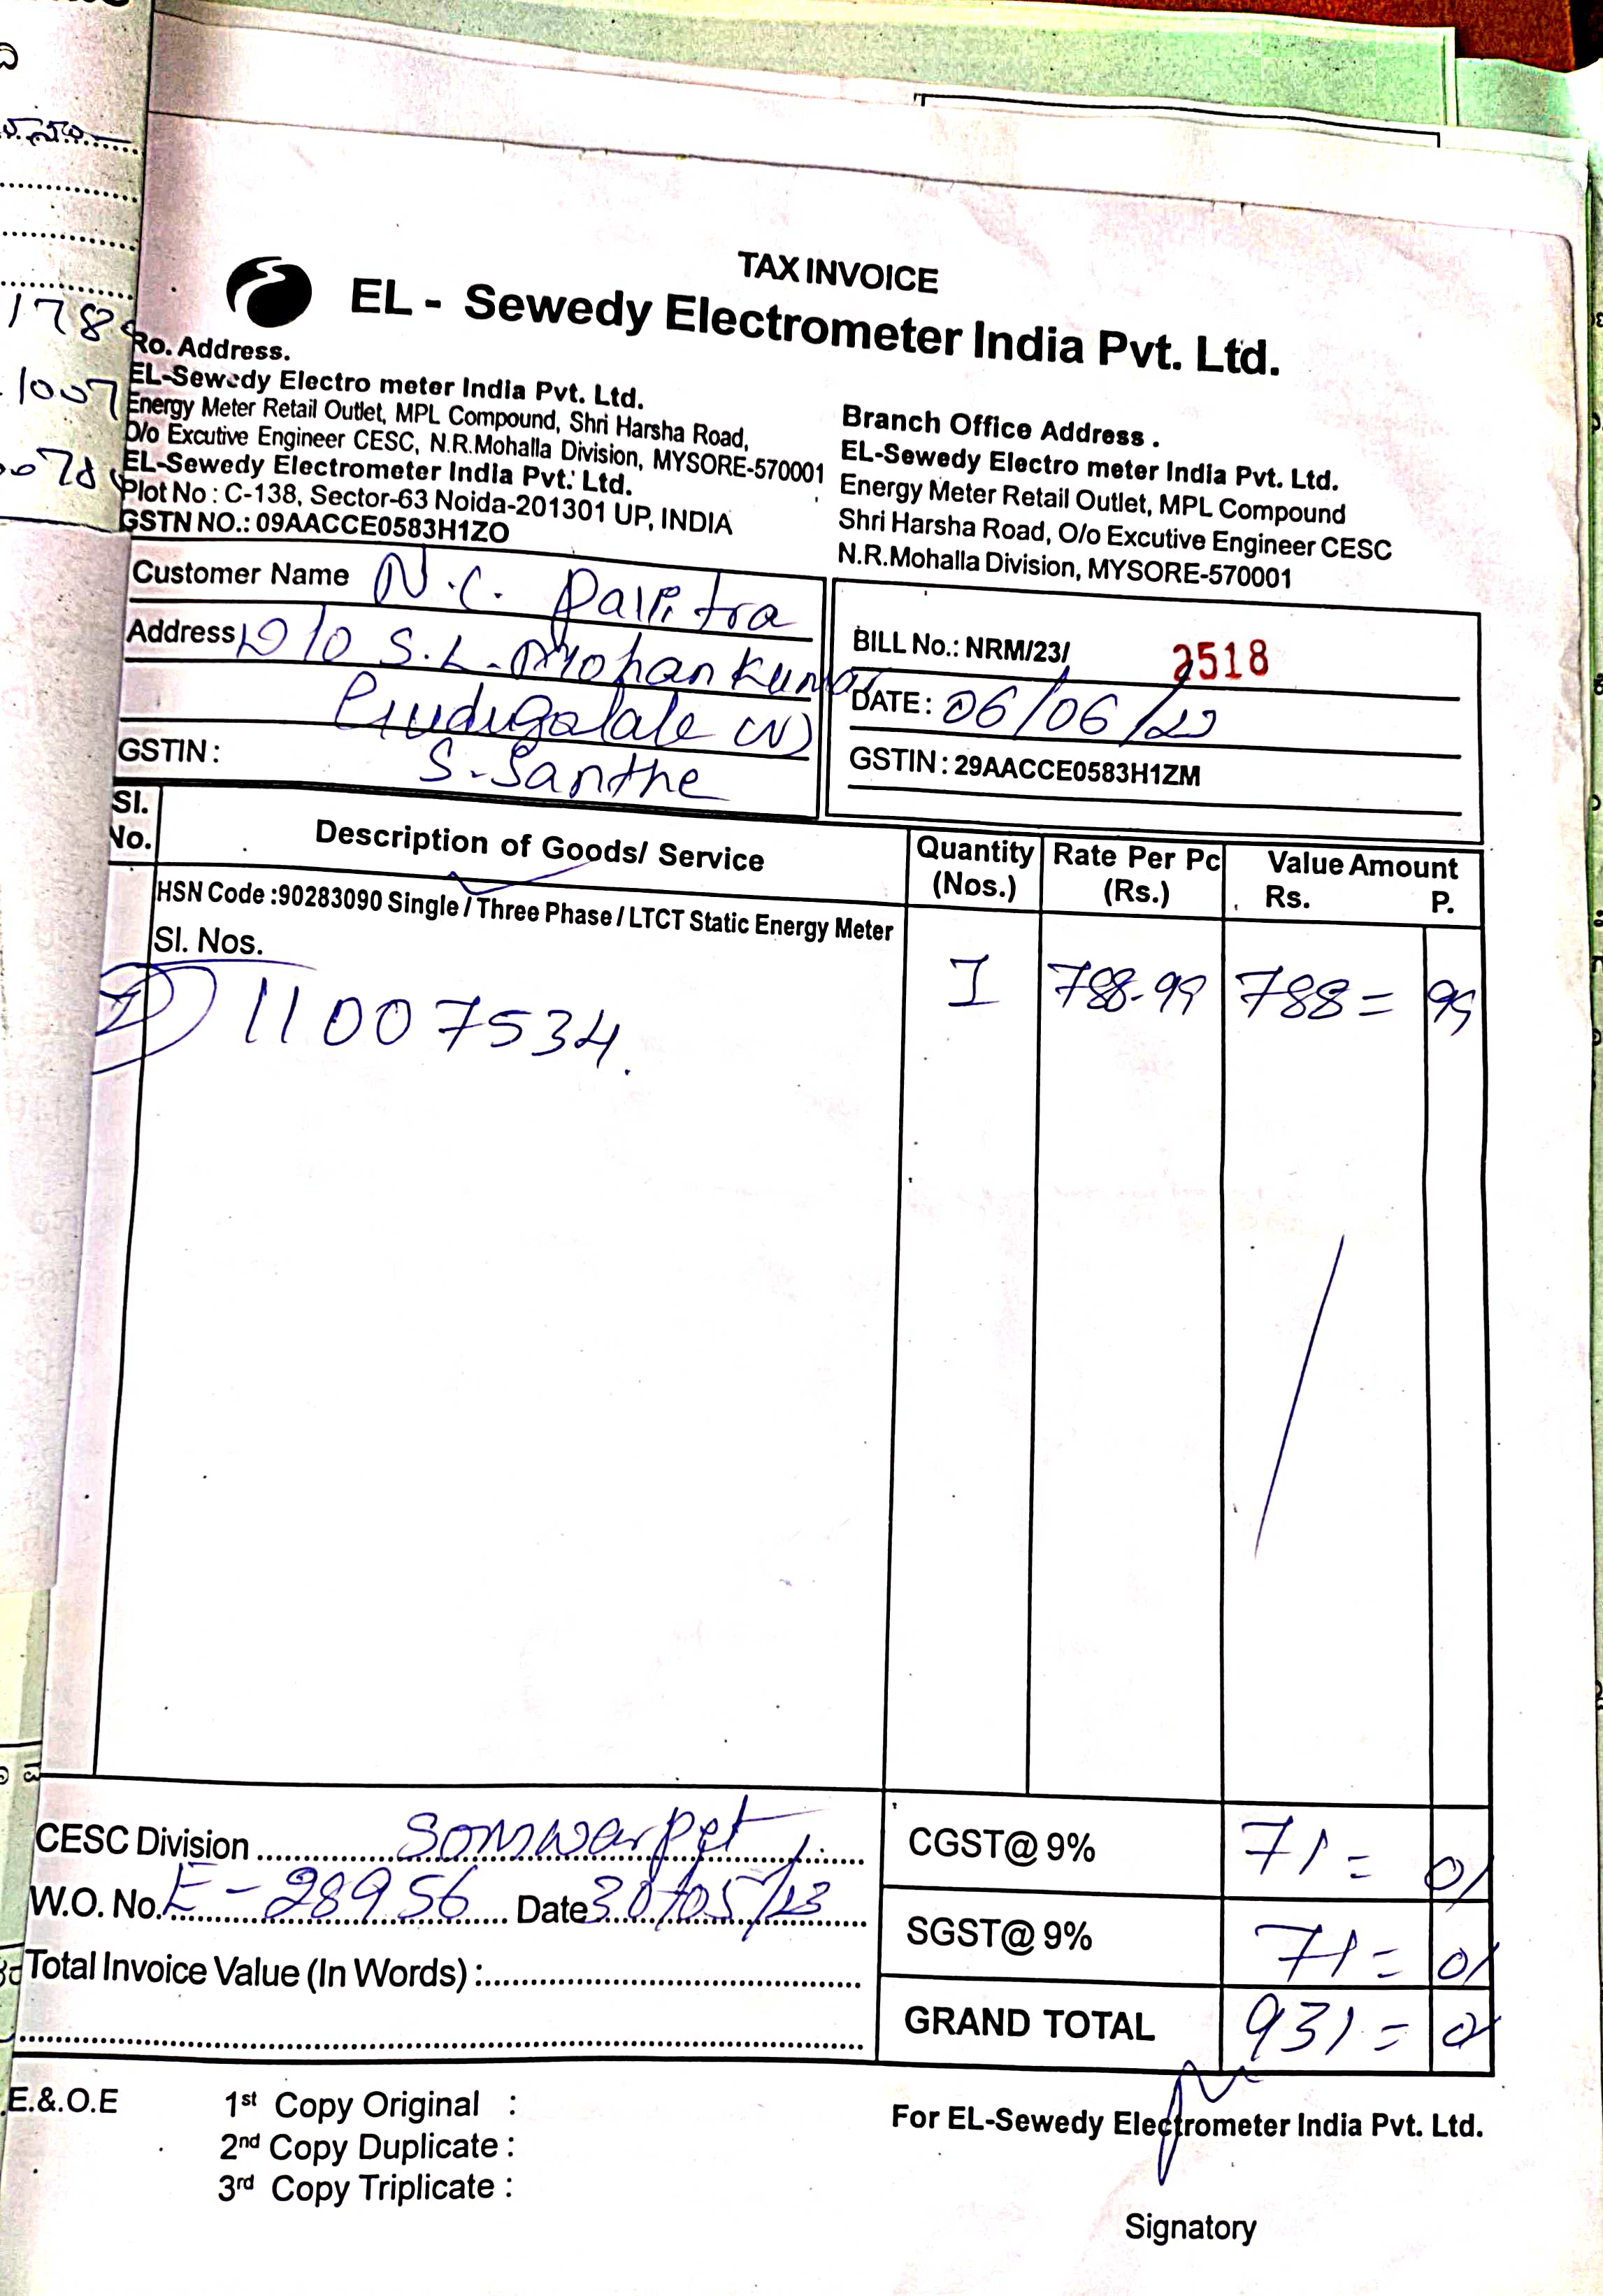 TAX INVOICE
EL - Sewedy Electrometer India Pvt. Ltd.
Ro. Address.
EL-Sewedy Electro meter India Pvt. Ltd.
Energy Meter Retail Outlet, MPL Compound, Shri Harsha Road,
O/o Excutive Engineer CESC, N.R.Mohalla Division, MYSORE-570001
EL-Sewedy Electrometer India Pvt. Ltd.
Plot No : C-138, Sector-63 Noida-201301 UP, INDIA
GSTN NO.: 09AACCE0583H1ZO
Branch Office Address .
EL-Sewedy Electro meter India Pvt. Ltd.
Energy Meter Retail Outlet, MPL Compound
Shri Harsha Road, O/o Excutive Engineer CESC
N.R.Mohalla Division, MYSORE-570001
Customer Name N.C.
Address S.L. Mohan Kumar
GSTIN : S. Santhe
BILL No.: NRM/23/ 2518
DATE : 06/06/23
GSTIN : 29AACCE0583H1ZM
Sl. No. Description of Goods/ Service Quantity (Nos.) Rate Per Pc (Rs.) Value Amount Rs. P.
HSN Code :90283090 Single / Three Phase / LTCT Static Energy Meter
Sl. Nos.
1) 11007534. 1 788-99 788= 99
CESC Division Somwarpet
W.O. No. E-28956 Date 30/05/23
Total Invoice Value (In Words) :
CGST@ 9% 71= 01
SGST@ 9% 71= 01
GRAND TOTAL 931= 01
E.&.O.E
1st Copy Original :
2nd Copy Duplicate :
3rd Copy Triplicate :
For EL-Sewedy Electrometer India Pvt. Ltd.
Signatory